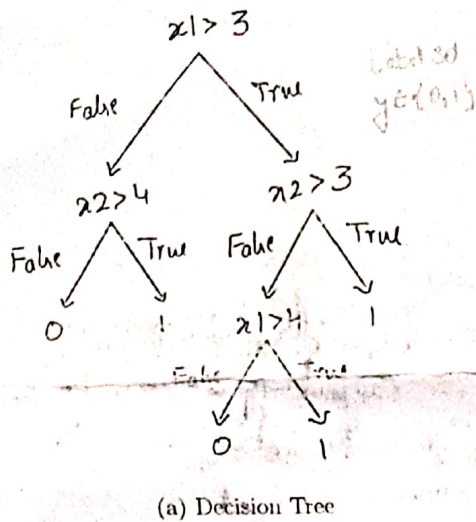 x1 > 3
False True
x2 > 4 x2 > 3
False True False True
0 1 x1 > 4 1
False True
0 1
(a) Decision Tree